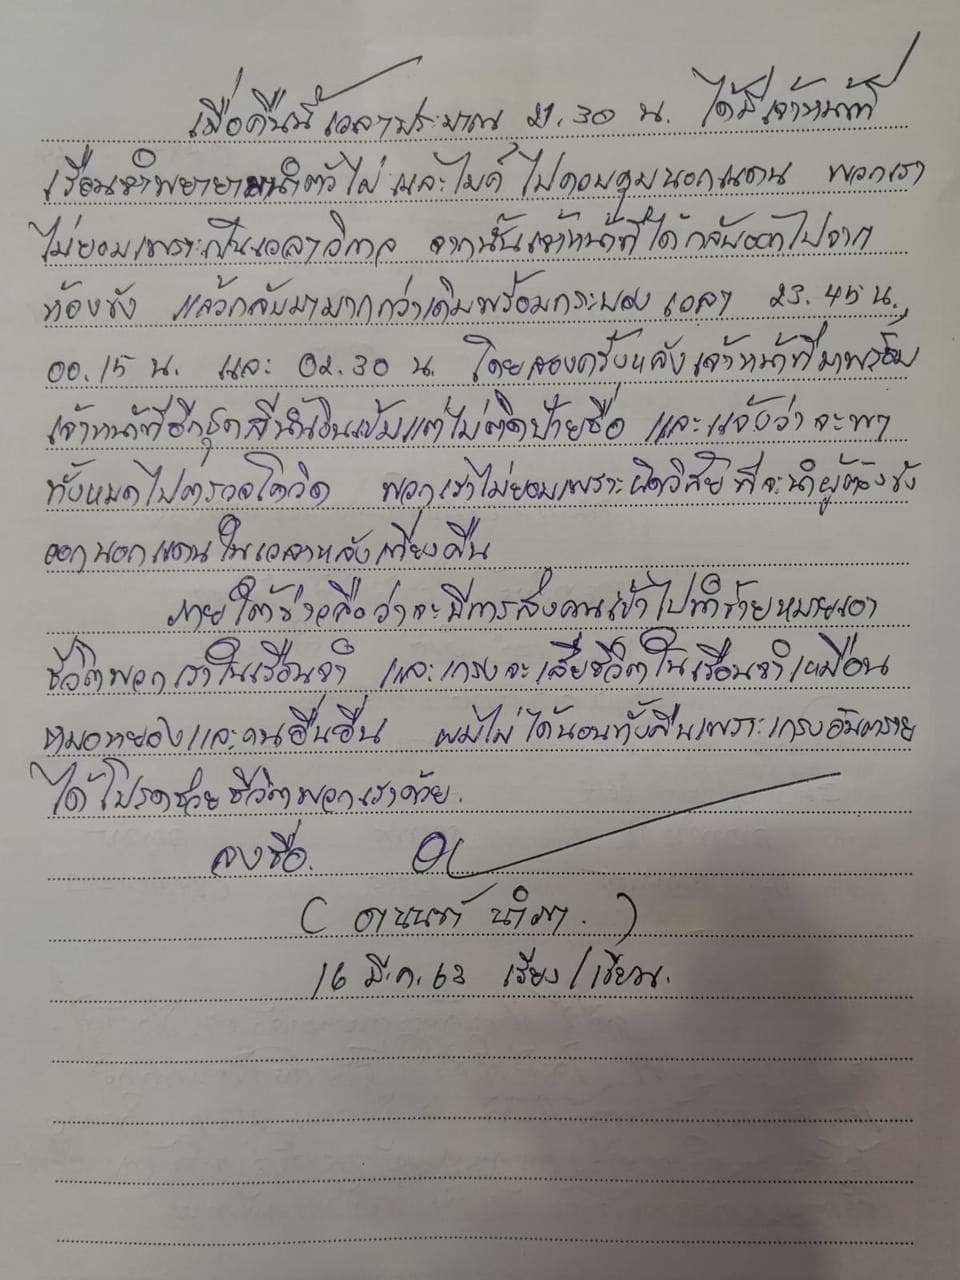 เมื่อคืนนี้เวลาประมาณ 21.30 น. ได้มีเจ้าหน้าที่
เรือนจำพยายามนำตัวไผ่ และไมค์ ไปควบคุมนอกแดน พวกเรา
ไม่ยอมเพราะเป็นเวลาวิกาล จากนั้นเจ้าหน้าที่ได้กลับออกไปจาก
ห้องขัง แล้วกลับมามากกว่าเดิมพร้อมกระบอง เวลา 23.45 น.
00.15 น. และ 02.30 น. โดยสองครั้งหลังเจ้าหน้าที่มาพร้อม
เจ้าหน้าที่อีกชุดสีน้ำเงินเข้มแต่ไม่ติดป้ายชื่อ และแจ้งว่าจะพา
ทั้งหมดไปตรวจโควิด พวกเราไม่ยอมเพราะผิดวิสัยที่จะนำผู้ต้องขัง
ออกนอกแดนในเวลาหลังเที่ยงคืน
ภายใต้ข่าวลือว่าจะมีการส่งคนเข้าไปทำร้ายหมายเอา
ชีวิตพวกเราในเรือนจำ และเกรงจะเสียชีวิตในเรือนจำเหมือน
หมอหยองและคนอื่นอื่น ผมไม่ได้นอนทั้งคืนเพราะเกรงอันตราย
ได้โปรดช่วยชีวิตพวกเราด้วย.
ลงชื่อ.
( อานนท์ นำภา. )
16 มี.ค. 63 เรียง/เขียน.